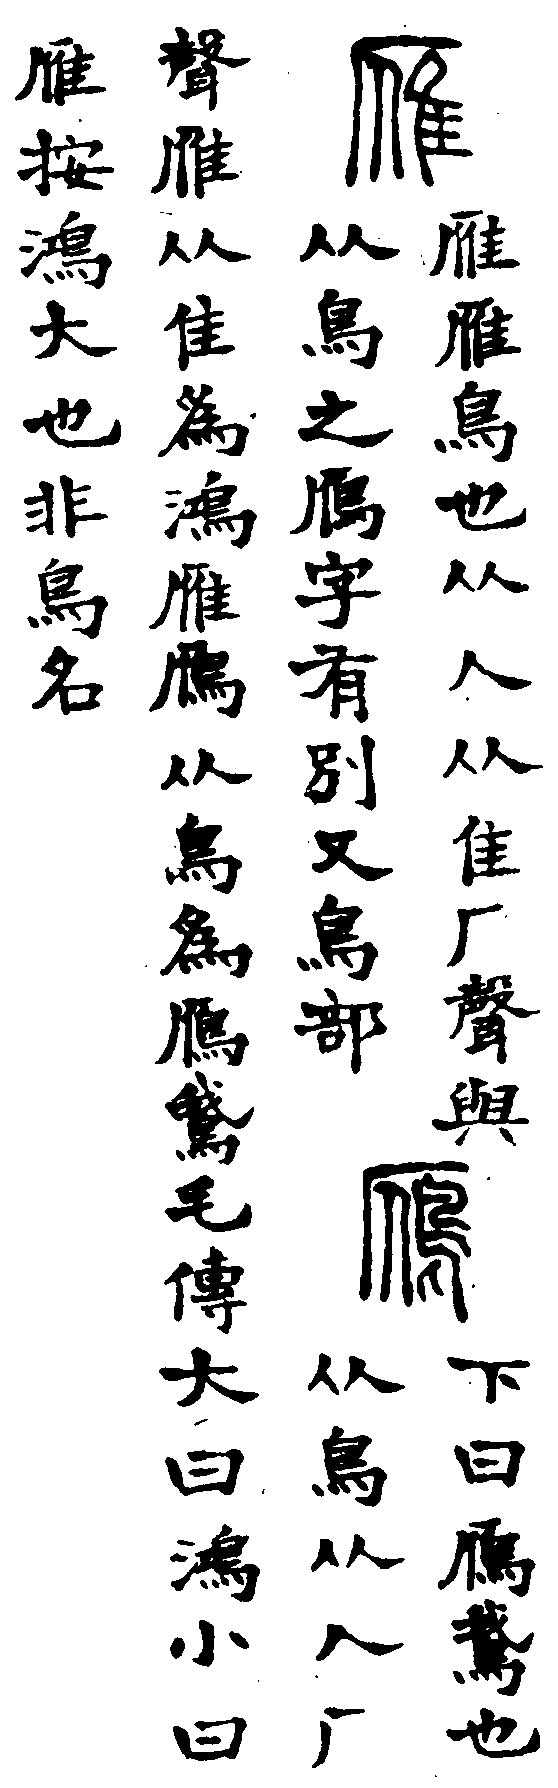 雁
雁雁鳥也从人从隹厂聲與
从鳥之鴈字有別又鳥部
鴈
下曰鴈鵞也
从鳥从人厂
聲雁从隹為鴻雁鴈从鳥為鴈鵞毛傳大曰鴻小曰
雁按鴻大也非鳥名